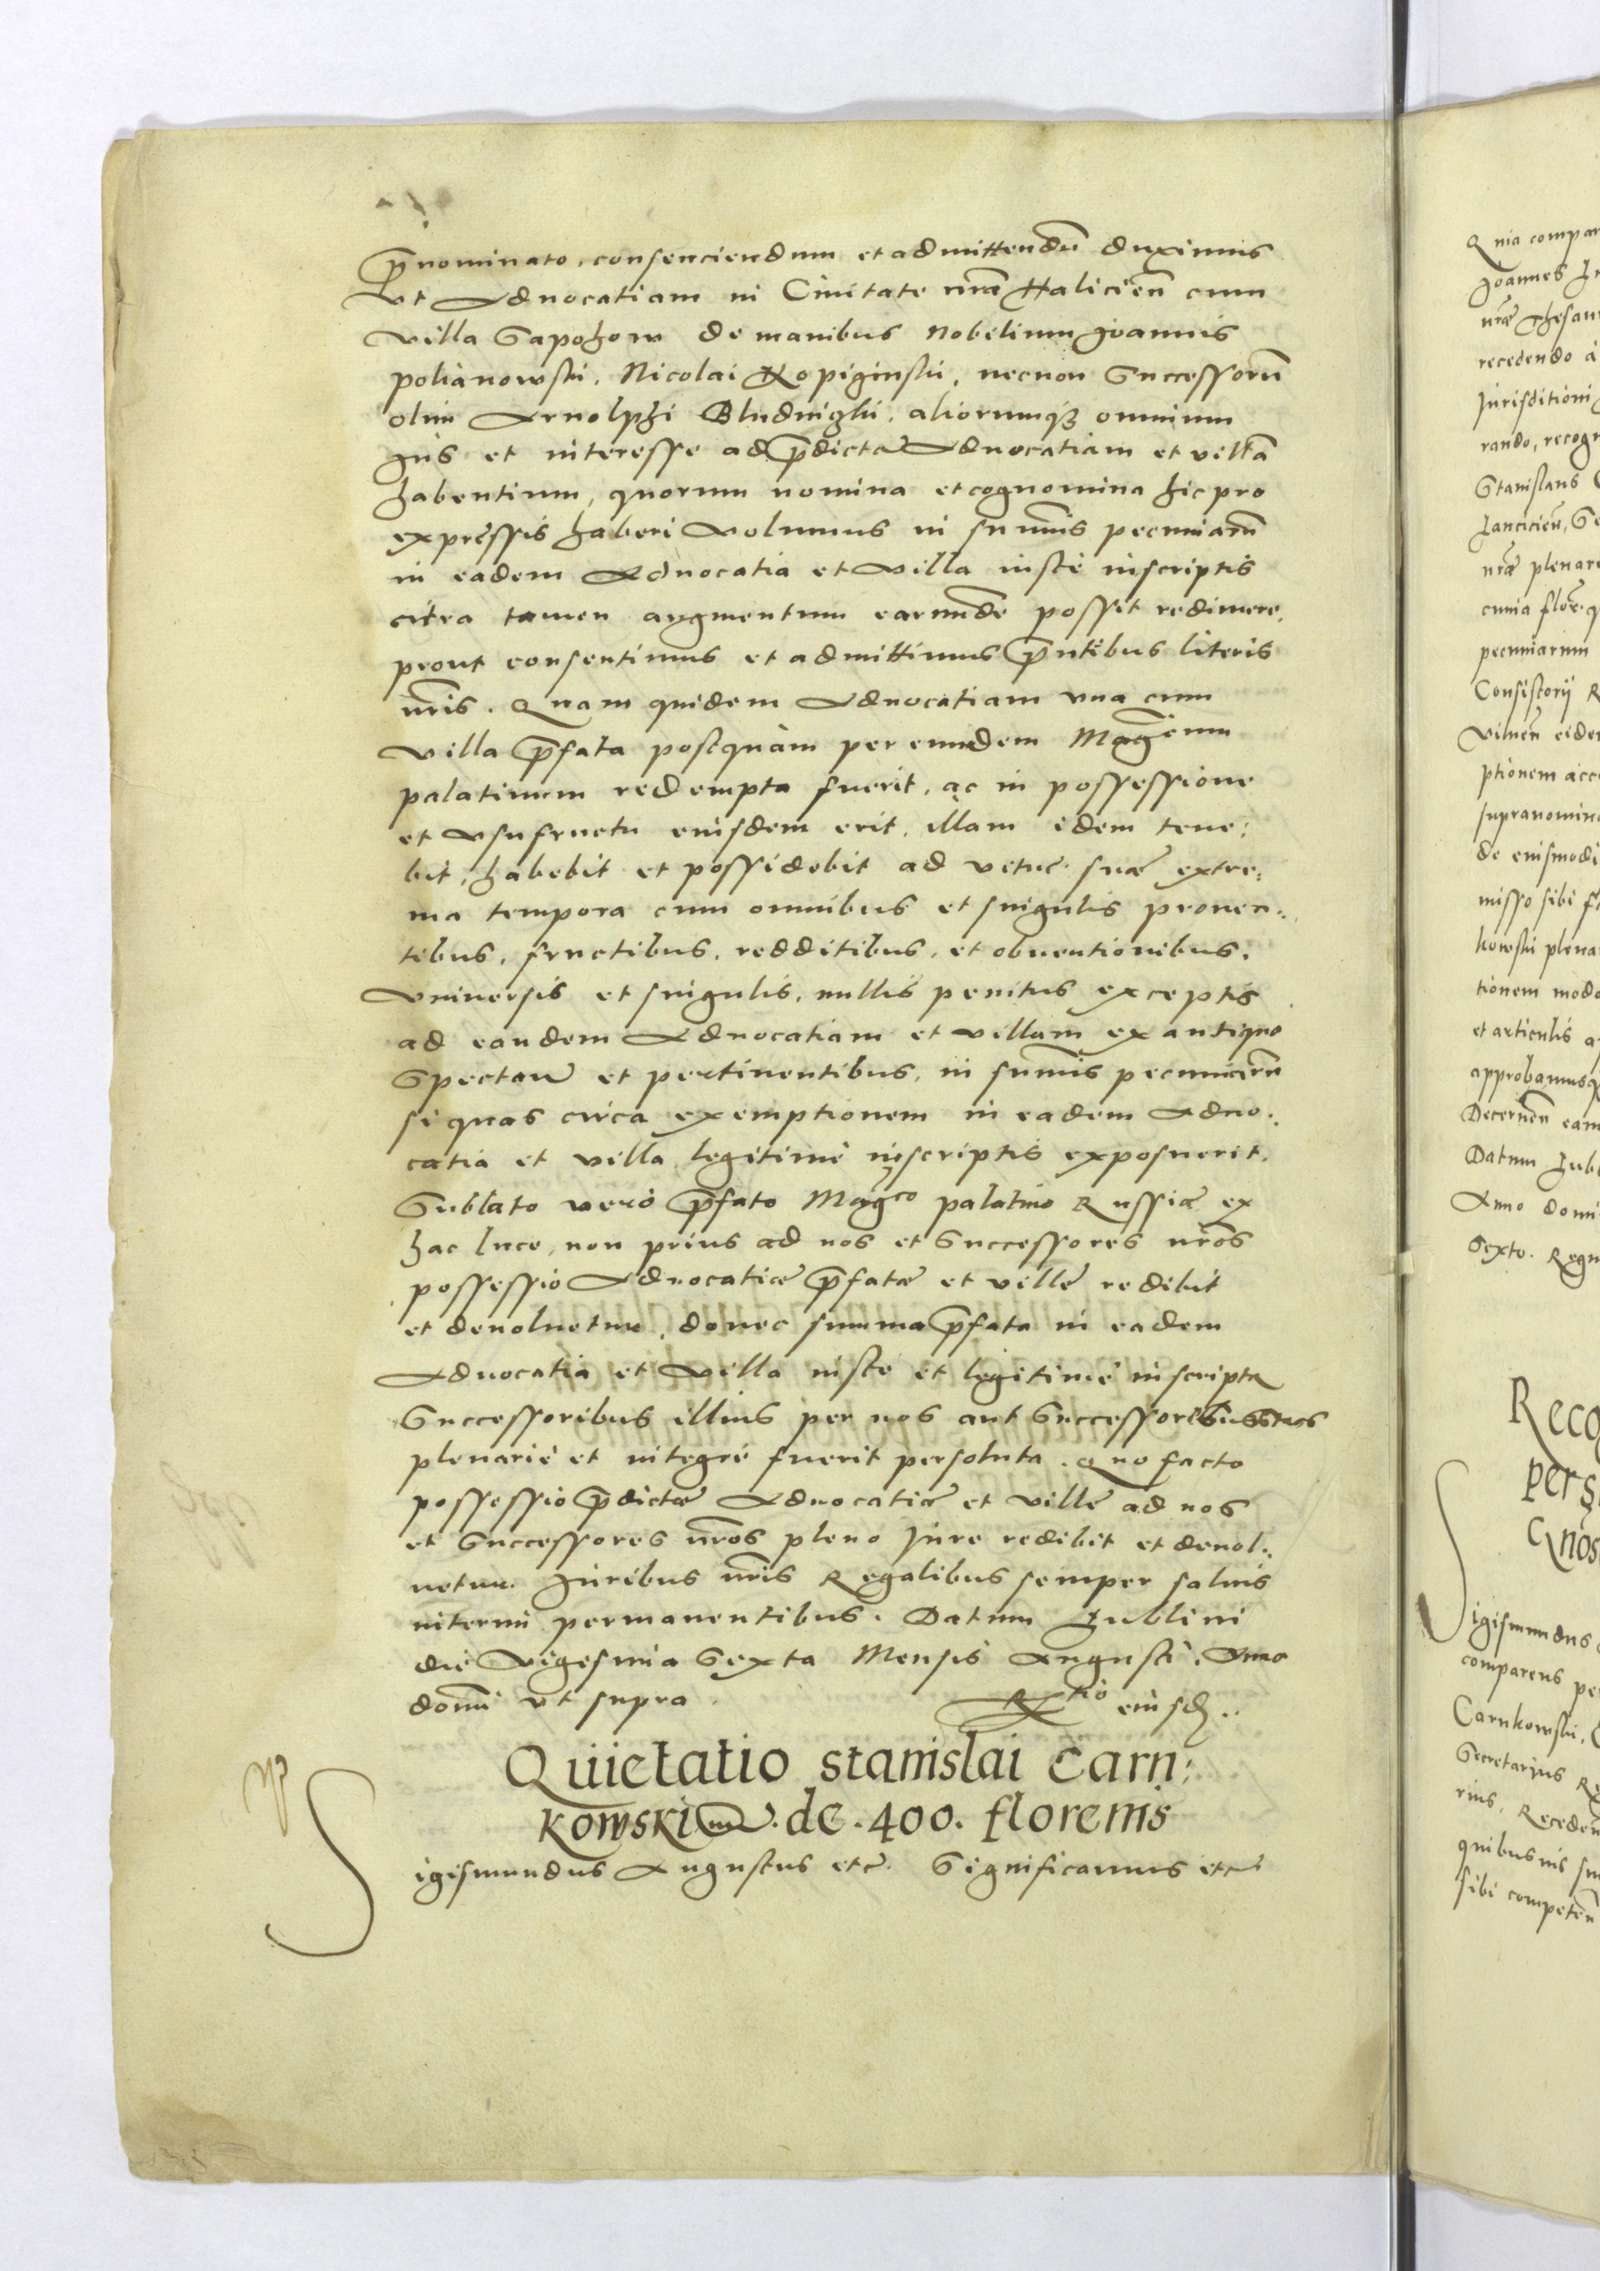 p̄nominato, consenciendum et admittendū duximus
Vt Aduocatiam in Ciuitate nrā Halicieñ cum
villa Sapohow de manibus Nobilium Joannis
polianowski, Nicolai Ropiginski, necnon Successorū
olim Arnolphi Bludnighi, aliorumqꝫ omnium
Jus et interesse ad p̄dictā Aduocatiam et villā
habentium, quorum nomina et cognomina hic pro
expressis haberi volumus in summis pecuniarū
in eadem Aduocatia et villa iuste inscriptis
citra tamen augmentum earundē possit redimere,
prout consentimus et admittimus p̄ntibus literis
nr̄is. Quam quidem Aduocatiam vna cum
villa p̄fata postquam per eundem Maḡcum
palatinum redempta fuerit, ac in possessione
et vsufructu eiusdem erit, illam idem tene:
bit, habebit et possidebit ad vitae suae extre:
ma tempora cum omnibus et singulis prouen:
tibus, fructibus, redditibus, et obuentionibus,
vniuersis et singulis, nullis penitus exceptis
ad eandem Aduocatiam et villam ex antiquo
Spectañ et pertinentibus, in summis pecuniarū
si quas circa exemptionem in eadem Aduo:
catia et villa legitimè inscriptis exposuerit.
Sublato verò p̄fato Magco palatino Russiae ex
hac luce, non prius ad nos et Successores nros
possessio Aduocatiae p̄fatae et villae redibit
et deuoluetur, donec summa p̄fata in eadem
Aduocatia et villa iuste et legitimè inscripta
Successoribus illius per nos aut Successores nostros
plenariè et integrè fuerit persoluta. Quo facto
possessio p̄dictae Aduocatiae et villae ad nos
et Successores nros pleno Jure redibit et deuol:
uetur. Juribus nr̄is Regalibus semper saluis
interim permanentibus. Datum Lublini
die Vigesima Sexta Mensis Augusti. Anno
domini vt supra. Rtio eiusd.
Quietatio Stanislai Carn:
kowski de .400. florenis
Sigismundus Augustus etc. Significamus etc
Quia compar
Joannes
nrae Thesau
recedendo a
Jurisditioni
rando, recog
Stanislaus
Lanciciеñ, Se
nrā plenari
cunia florē q
pecuniarum
Consistorij
vilneñ eide
ptionem acc
supranomina
de eiusmodi
misso sibi
kowski plena
tionem modo
et articulis
approbamusq
Decernen̄ eam
Datum Lubl
Anno domi
Sexto. Regn
Reco
per S
Cnos
Sigismundus
comparens pe
Carnkowski,
Secretarius
rius, Recede
quibusuis su
sibi competen